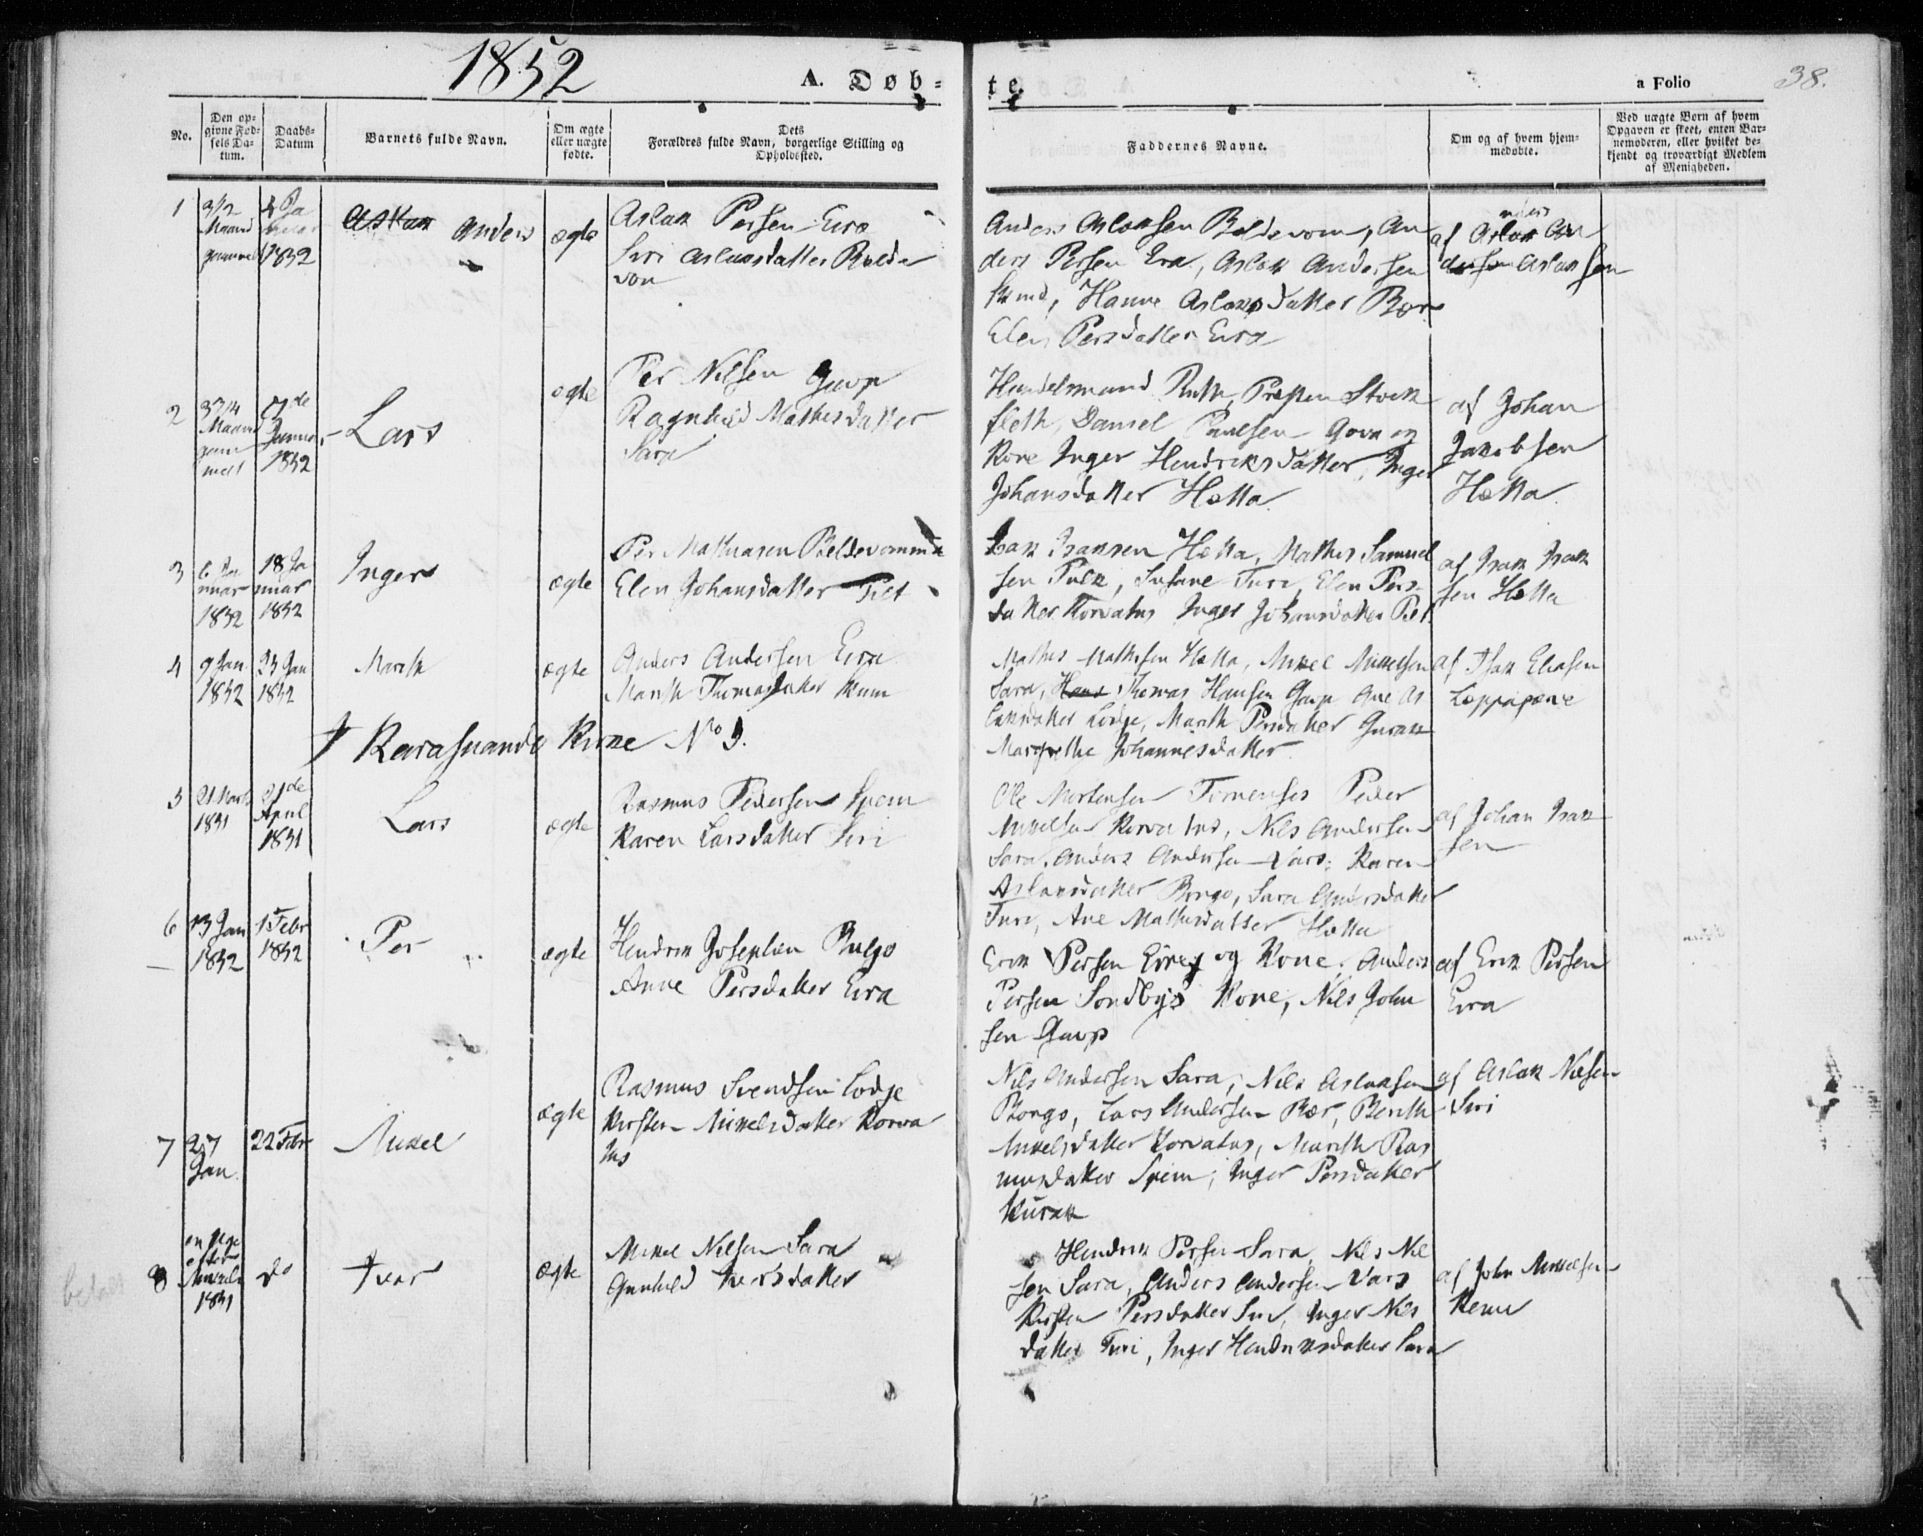 1852
A. Døb-
te.
a Folio
38.
No.
Den op-
givne Fød-
sels Da-
tum.
Daabs-
Datum
Barnets fulde Navn.
Om ægte
eller uægte
fødte.
Dets
Forældres fulde Navn, borgerlige Stilling og
Opholdssted.
Faddernes Navne.
Om og af hvem hjem-
medøbte.
Ved uægte Børn af hvem
Opgaven er skeet, enten Bar-
nemoderen, eller hvilket be-
kjendt og troværdigt Medlem
af Menigheden.
1
3 1/2
Maaned
gammel
1852
Anders
ægte
Aslak Persen Eira
Siri Aslaksdatter Belde
von
Anders Aslaksen Beldevom, An
ders Persen Eira, Aslak Andersen
Kum, Hanne Aslaksdatter Bær
Elen Persdatter Eira
af Aslak An
Aslaksen
2
Maaned
gam
mel
Januar
1852
Lars
ægte
Per Nilsen Gavp
Ragnhild Mathisdatter
Sara
Handelsmand Ruth, Præsten Stock
fleth, Daniel Paulsen Govn og
Kone Inger Hendriksdatter, Inger
Johansdatter Hætta
af Johan
Jakobsen
Hætta
3
6 Ja
nuar
1852
18 Ja
nuar
1852
Inger
ægte
Per Mathiasen Beldevomm
Elen Johansdatter Piet
Isak Isaksen Hætta, Mathis Samuel
sen Pulk, Susane Turi, Elen Pers
datter Korvatus Inger Johansdatter Piet
af Isak Isak
sen Hætta
4
9 Jan
1852
23 Jan
1852
Marith
ægte
Anders Andersen Eira
Marith Thomasdatter Kum
Mathis Mathisen Hætta, Mikkel Mikkelsen
Sara, Thomas Hansen Gavp Ane As
laksdatter Lodje, Marith Persdatter Gurak
Margrethe Johannesdatter
af Isak Eliasen
Læppajærve
† Karasuando Kirke No 9.
5
21 Marts
1851
21de
April
1851
Lars
ægte
Rasmus Pedersen Spein
Karen Larsdatter Siri
Ole Mortensen Tornensis Peder
Mikkelsen Korvatus, Nils Andersen
Sara, Anders Andersen Vars, Karen
Aslaksdatter Bongo, Sara Andersdatter
Turi, Ane Mathisdatter Hætta
af Johan Isak
sen
6
13 Jan
1852
1 Febr
1852
Per
ægte
Hendrik Josephsen Bulgo
Anne Persdatter Eira
Erik Persen Eira og Kone, Anders
Persen Sondbys Kone, Nils John
sen Gavp
af Erik Persen
Eira
7
27
Jan
22 Febr
Mikel
ægte
Rasmus Svendsen Lodje
Kirsten Mikkelsdatter Korva
tus
Nils Andersen Sara, Nils Aslaksen
Bongo, Lars Andersen Bær, Berith
Mikkelsdatter Korvatus, Marith Ras
musdatter Spein, Inger Persdatter
Kurak
af Aslak Nilsen
Siri
8
en Uge
efter
Mikkeli
1851
do
Ivar
ægte
Mikel Nilsen Sara
Gunhild Iversdatter
Hendrik Persen Sara, Nils Nil
sen Sara, Anders Andersen Vars
Kirsten Persdatter Siri, Inger Nils
datter Turi, Inger Hendriksdatter Sara
af John Mikkelsen
Kemi